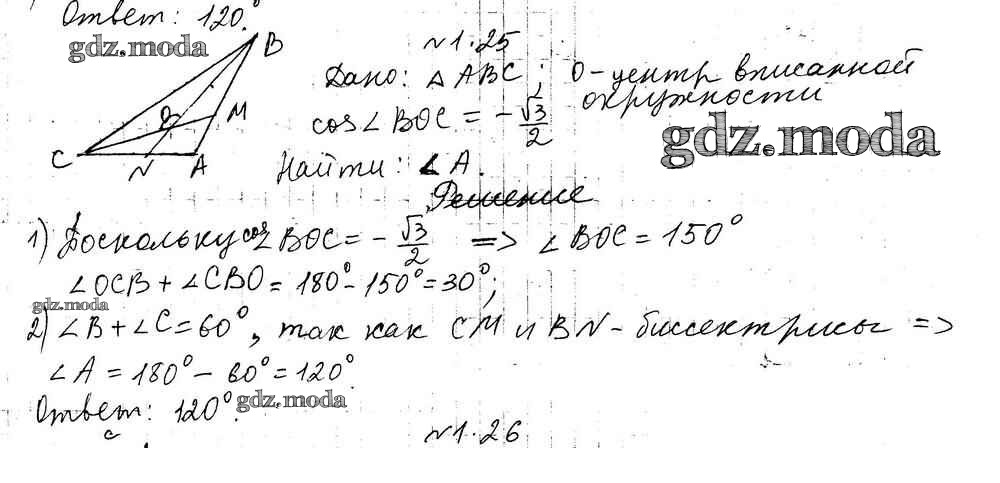 Ответ: 120°.
gdz.moda
B
O
M
C
N
A
№1.25
Дано: △ABC; O-центр вписанной
окружности
cos∠BOC = -√3/2
gdz.moda
Найти: ∠A.
Решение
1) Поскольку cos∠BOC = -√3/2 => ∠BOC = 150°
∠OCB + ∠CBO = 180° - 150° = 30°;
gdz.moda
2) ∠B + ∠C = 60°, так как CM и BN - биссектрисы =>
∠A = 180° - 60° = 120°.
Ответ: 120°.
gdz.moda
№1.26